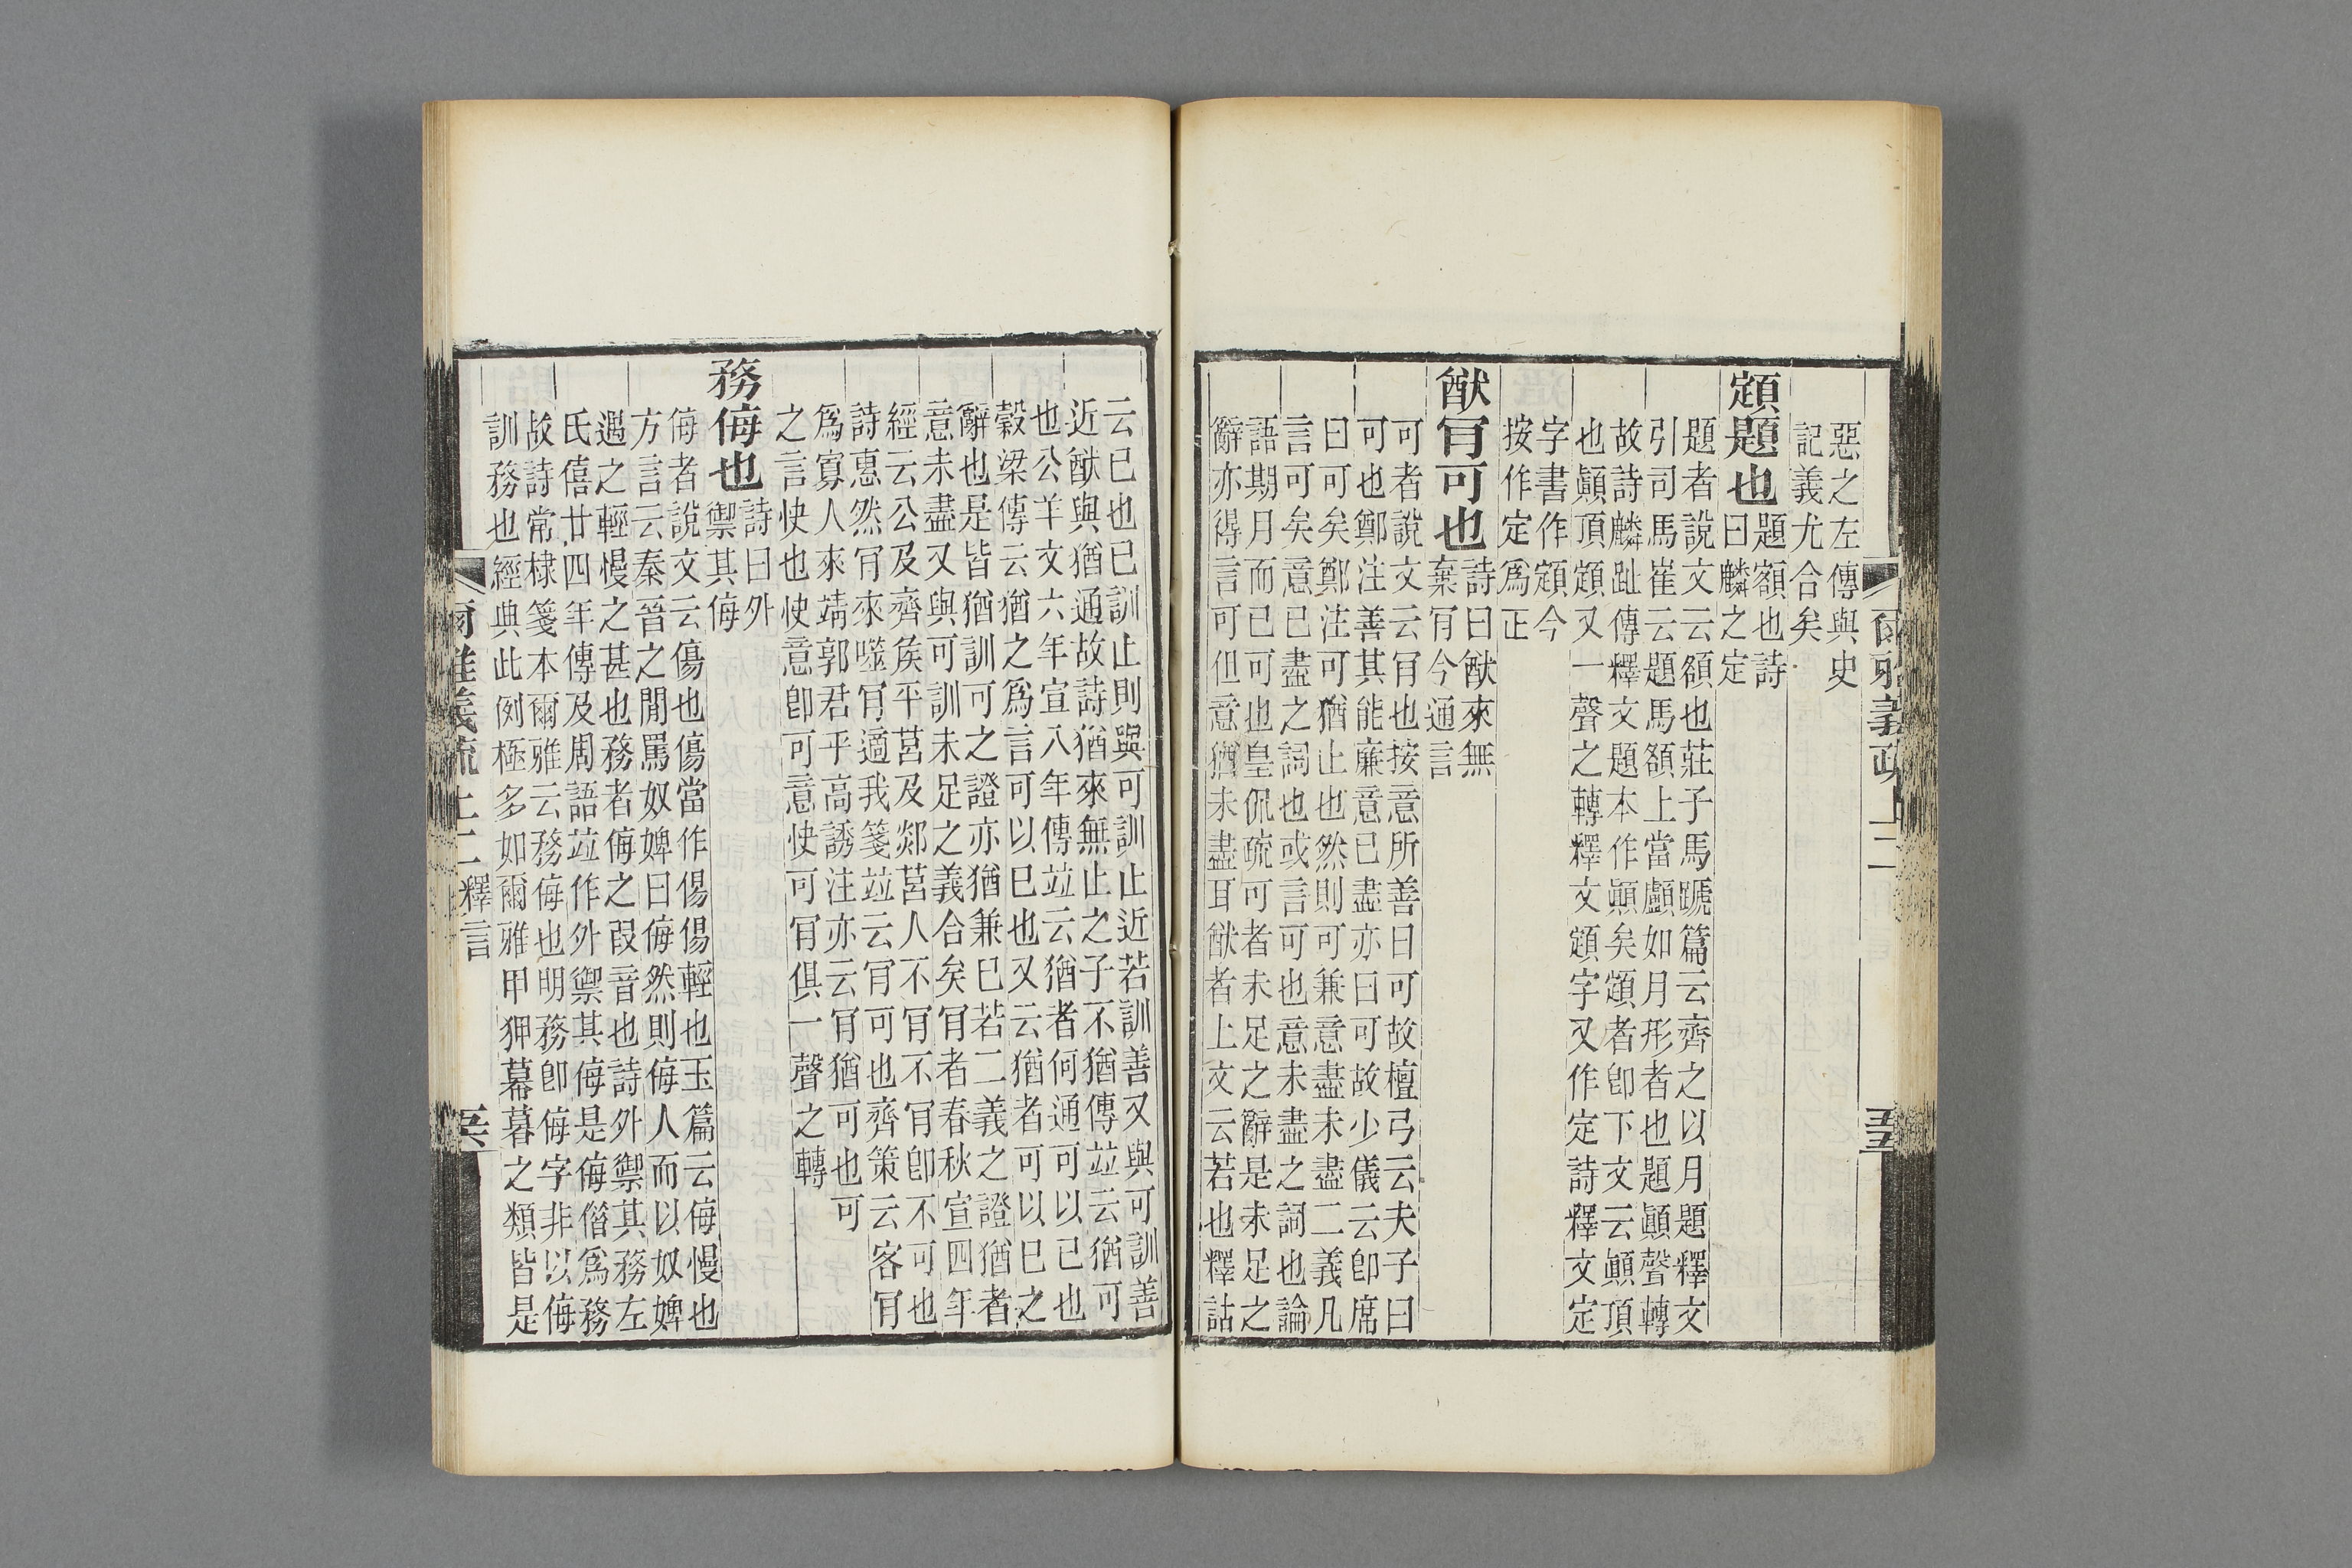 爾雅義疏 上二
五五
惡之左傳與史
記義尤合矣
顁題也
題額也詩
曰麟之定
題者說文云額也莊子馬蹏篇云齊之以月題釋文
引司馬崔云題馬額上當顱如月形者也題顚聲轉
故詩麟趾傳釋文題本作顚矣顁者卽下文云顚頂
也顚頂顁又一聲之轉釋文顁字又作定詩釋文定
字書作顁今
按作定爲正
猷肎可也
詩曰猷來無
棄肎今通言
可者說文云肎也按意所善曰可故檀弓云夫子曰
可也鄭注善其能廉意已盡亦曰可故少儀云卽席
曰可矣鄭注可猶止也然則可兼意盡未盡二義凡
言可矣意已盡之詞也或言可也意未盡之詞也論
語期月而已可也皇侃疏可者未足之辭是未足之
辭亦得言可但意猶未盡耳猷者上文云若也釋詁
云已也已訓止則與可訓止近若訓善又與可訓善
近猷與猶通故詩猶來無止之子不猶傳竝云猶可
也公羊文六年宣八年傳竝云猶者何通可以已也
穀梁傳云猶之爲言可以已也又云猶者可以已之
辭也是皆猶訓可之證亦猶兼已若二義之證猶者
意未盡又與可訓未足之義合矣肎者春秋宣四年
經云公及齊侯平莒及郯莒人不肎不肎卽不可也
詩惠然肎來噬肎適我箋竝云肎可也齊策云客肎
爲寡人來靖郭君乎高誘注亦云肎猶可也可
之言快也快意卽可意快可肎俱一聲之轉
務侮也
詩曰外
禦其侮
侮者說文云傷也傷當作傷傷輕也玉篇云侮慢也
方言云秦晉之閒罵奴婢曰侮然則侮人而以奴婢
遇之輕慢之甚也務者侮之叚音也詩外禦其務左
氏僖廿四年傳及周語竝作外禦其侮是侮偣爲務
故詩常棣箋本爾雅云務侮也明務卽侮字非以侮
訓務也經典此例極多如爾雅甲狎幕暮之類皆是
爾雅義疏 上二 釋言
五六